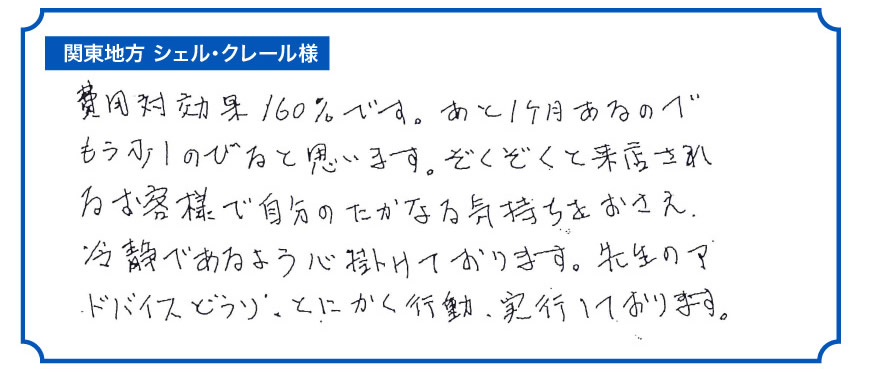 関東地方 シェル・クレール様
費用対効果160%です。あと1ケ月あるので
もう少しのびると思います。ぞくぞくと来店され
るお客様で自分のたかなる気持ちをおさえ、
冷静であるよう心掛けております。先生のア
ドバイスどうり、とにかく行動、実行しております。